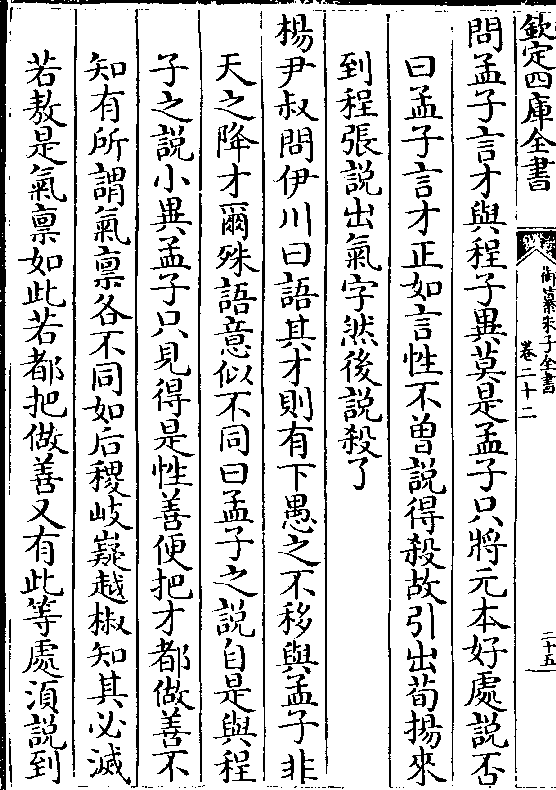 欽定四庫全書
御纂朱子全書
卷二十二
二十五
問孟子言才與程子異莫是孟子只將元本好處說否
曰孟子言才正如言性不曾說得殺故引出荀揚來
到程張說出氣字然後說殺了
楊尹叔問伊川曰語其才則有下愚之不移與孟子非
天之降才爾殊語意似不同曰孟子之說自是與程
子之說小異孟子只見得是性善便把才都做善不
知有所謂氣禀各不同如后稷岐嶷越椒知其必滅
若敖是氣禀如此若都把做善又有此等處須說到